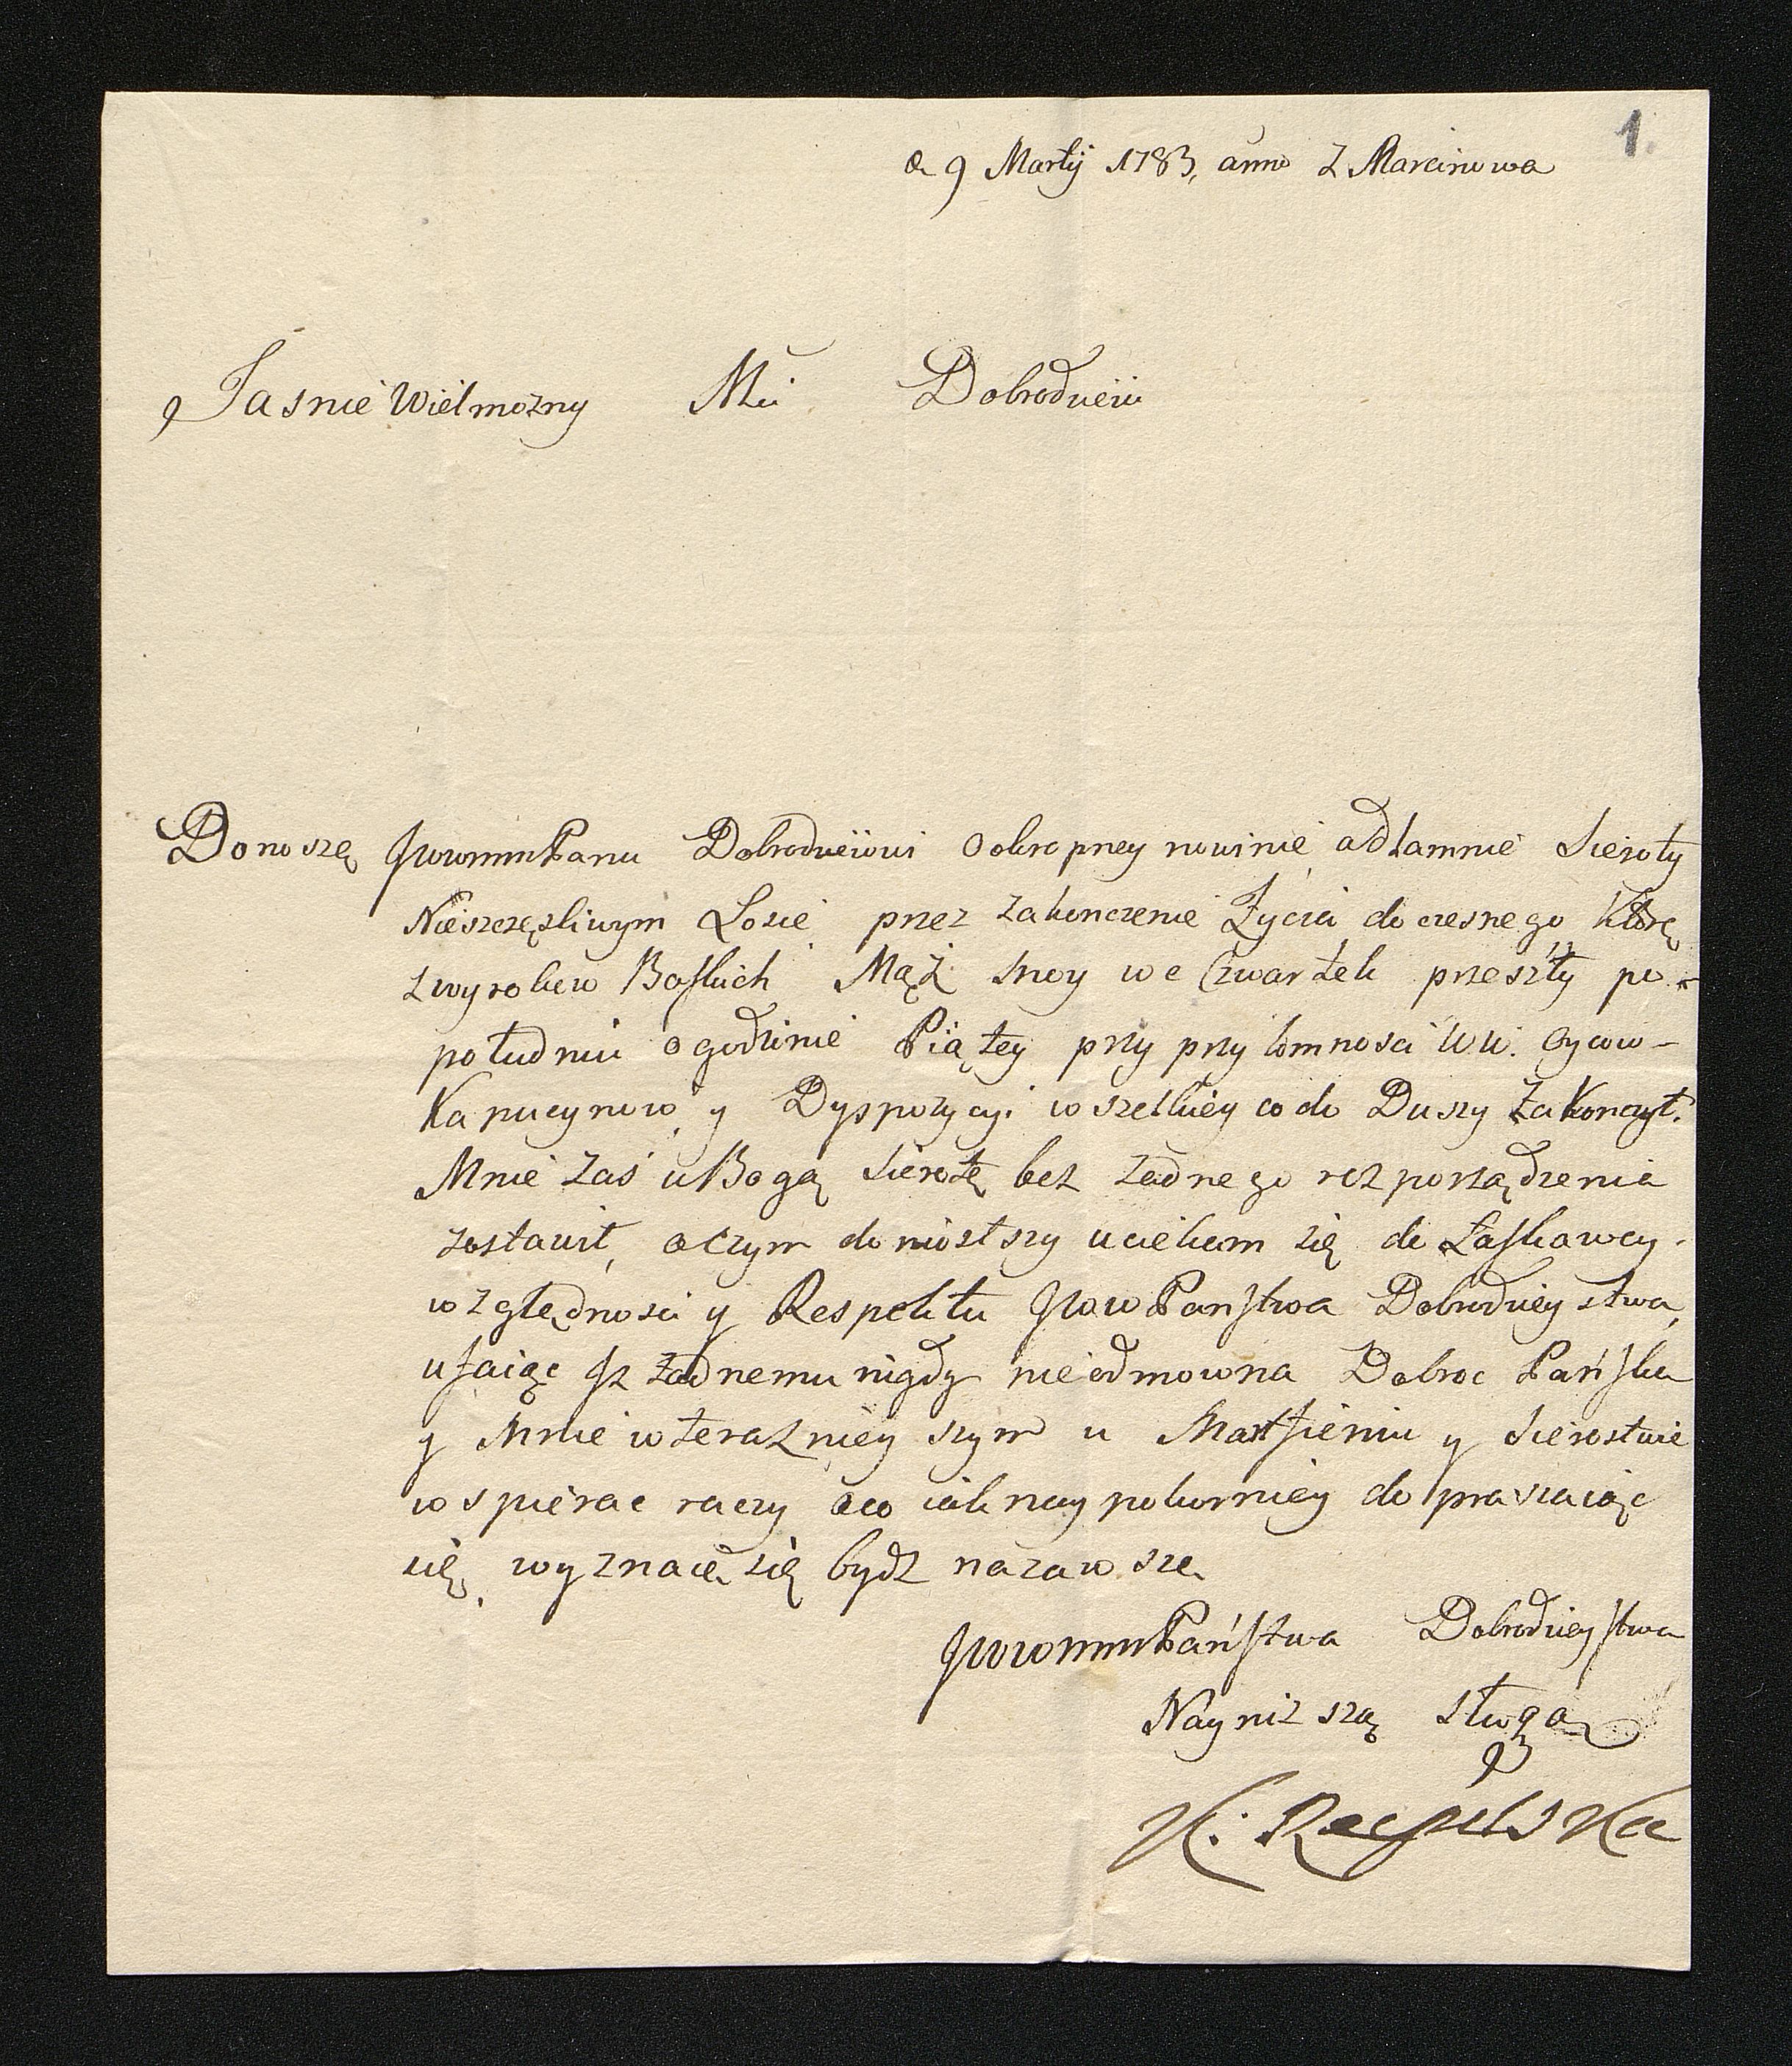 1.
d 9 Martij 1783, anno z Marcinowa
Jasnie Wielmozny Mci Dobrodzieiu
Donoszę JWWmmPanu Dobrodzieiowi o okropney nowinie adlamnie Sieroty
Nieszczęsliwym Losie przez zakonczenie Życia doczesnego Ktorę
z wyrokow Boskich Mąż moy we Czwartek przeszły po
południu o godzinie Piątey przy przytomnosci WW. Oycow
Kapucynow y Dyspozycyi wszelkiey co do Duszy zakonczył.
Mnie zas uBogą sierotę bez zadnego rozporządzenia
zostawił, o czym doniosłszy uciekam się do Łaskawey
względnosci y Respektu JWW Panstwa Dobrodzieystwa,
ufaiąc Jz żadnemu nigdy nieodmowna Dobroc Pańska
y Mnie w teraznieyszym u Martfieniu y Sierostwie
wspierac raczy o co iak naypokorniey dopraszaiąc
się, wyznaię się bydz nazawsze
JWWmmPaństwa Dobrodzieystwa
Nayniszą sługą
K. Raczyńska